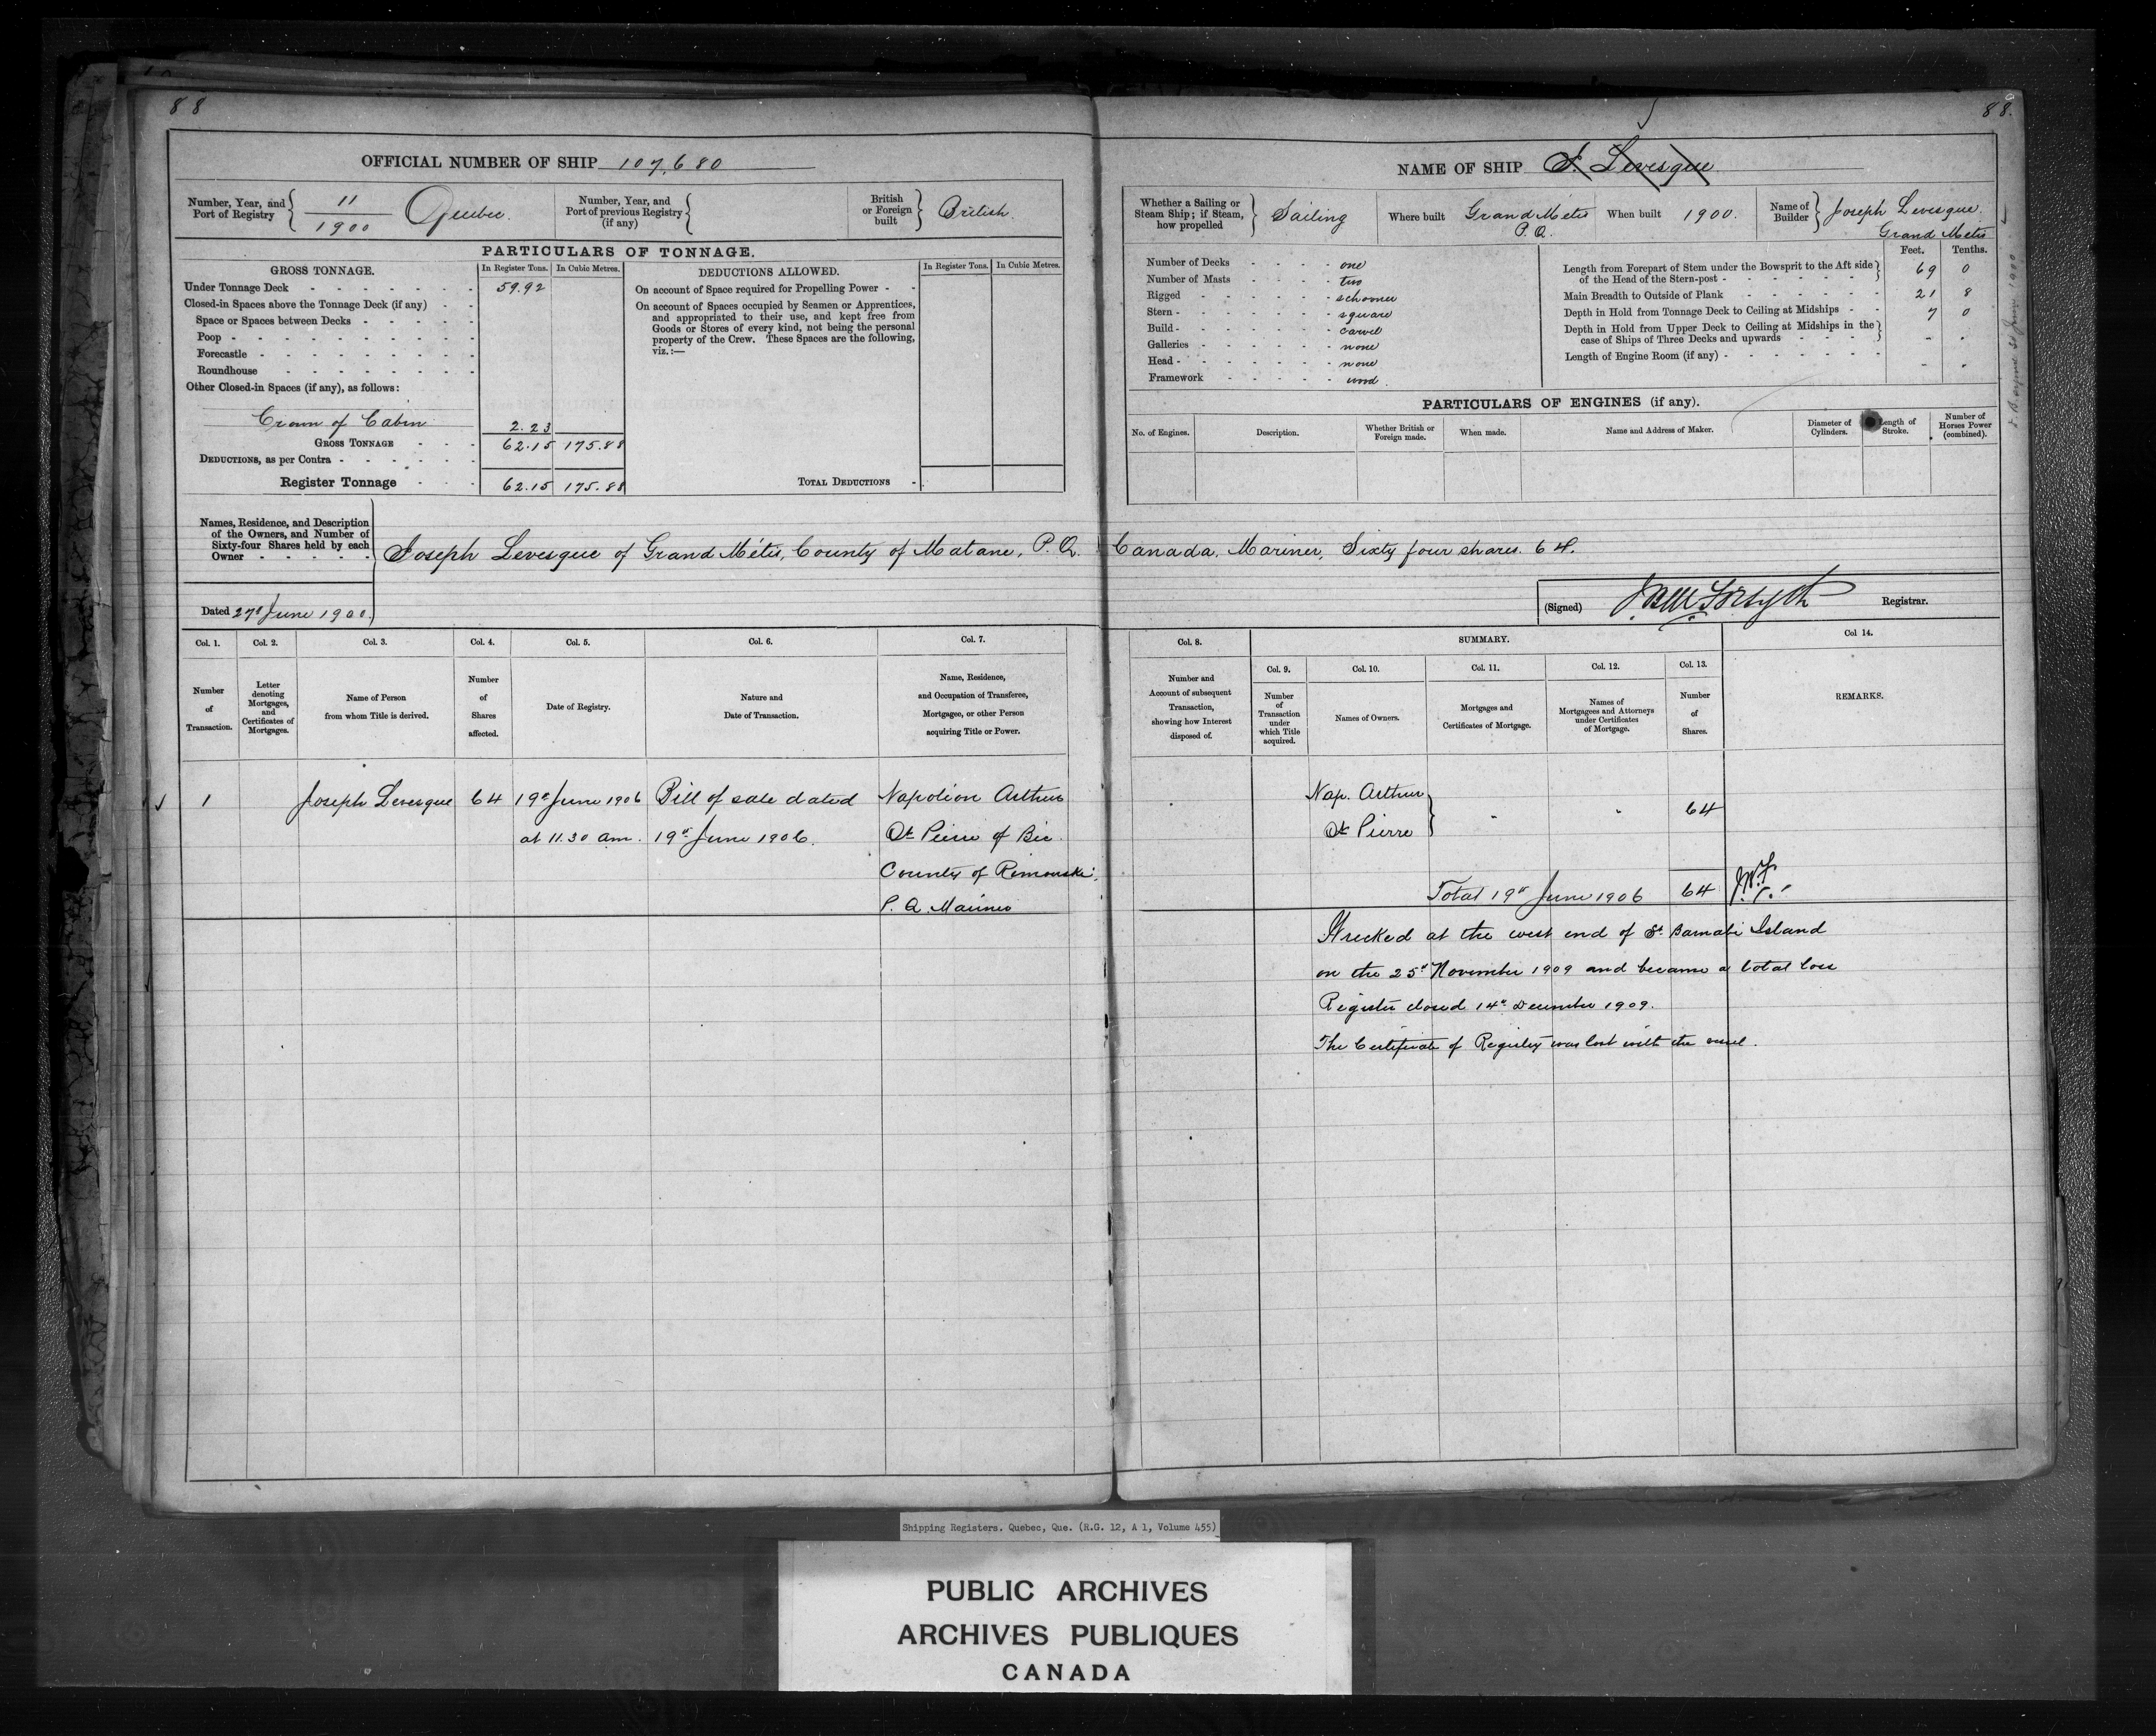 88
OFFICIAL NUMBER OF SHIP 107,680
Number, Year, and Port of Registry 11/1900 Quebec.
Number, Year, and Port of previous Registry (if any)
British or Foreign built British.
PARTICULARS OF TONNAGE.
GROSS TONNAGE. In Register Tons. In Cubic Metres.
Under Tonnage Deck 59.92
Closed-in Spaces above the Tonnage Deck (if any)
Space or Spaces between Decks
Poop
Forecastle
Roundhouse
Other Closed-in Spaces (if any), as follows:
Crown of Cabin 2.23
GROSS TONNAGE 62.15 175.88
DEDUCTIONS, as per Contra
Register Tonnage 62.15 175.88
DEDUCTIONS ALLOWED. In Register Tons. In Cubic Metres.
On account of Space required for Propelling Power
On account of Spaces occupied by Seamen or Apprentices,
and appropriated to their use, and kept free from
Goods or Stores of every kind, not being the personal
property of the Crew. These Spaces are the following,
viz.:—
TOTAL DEDUCTIONS
88.
NAME OF SHIP J. Levesque
Whether a Sailing or Steam Ship; if Steam, how propelled Sailing
Where built Grand Métis P.Q.
When built 1900.
Name of Builder Joseph Levesque. Grand Metis
Number of Decks one
Number of Masts two
Rigged schooner
Stern square
Build carvel
Galleries none
Head none
Framework wood.
Feet. Tenths.
Length from Forepart of Stem under the Bowsprit to the Aft side
of the Head of the Stern-post 69 0
Main Breadth to Outside of Plank 21 8
Depth in Hold from Tonnage Deck to Ceiling at Midships 7 0
Depth in Hold from Upper Deck to Ceiling at Midships in the
case of Ships of Three Decks and upwards
Length of Engine Room (if any)
PARTICULARS OF ENGINES (if any).
No. of Engines. Description. Whether British or Foreign made. When made. Name and Address of Maker. Diameter of Cylinders. Length of Stroke. Number of Horses Power (combined).
Names, Residence, and Description
of the Owners, and Number of
Sixty-four Shares held by each
Owner
Joseph Levesque of Grand Métis, County of Matane, P.Q. Canada, Mariner, Sixty four shares. 64.
Dated 27th June 1900.
(Signed) Forsyth Registrar.
Col. 1. Col. 2. Col. 3. Col. 4. Col. 5. Col. 6. Col. 7.
Number of Transaction.
Letter denoting Mortgages, and Certificates of Mortgages.
Name of Person from whom Title is derived.
Number of Shares affected.
Date of Registry.
Nature and Date of Transaction.
Name, Residence, and Occupation of Transferee, Mortgagee, or other Person acquiring Title or Power.
Col. 8. SUMMARY. Col 14.
Col. 9. Col. 10. Col. 11. Col. 12. Col. 13.
Number and Account of subsequent Transaction, showing how Interest disposed of.
Number of Transaction under which Title acquired.
Names of Owners.
Mortgages and Certificates of Mortgage.
Names of Mortgagees and Attorneys under Certificates of Mortgage.
Number of Shares.
REMARKS.
1 Joseph Levesque 64 19th June 1906 Bill of sale dated Napoléon Arthur
at 11.30 am. 19th June 1906. St Pierre of Bic
County of Rimouski,
P.Q. Mariner
Nap. Arthur
St Pierre 64
Total 19th June 1906 64 J.W.F.
Wrecked at the west end of St Barnabé Island
on the 25th November 1909 and became a total loss
Register closed 14th December 1909.
The Certificate of Registry was lost with the vessel.
Shipping Registers. Quebec, Que. (R.G. 12, A 1, Volume 455)
PUBLIC ARCHIVES
ARCHIVES PUBLIQUES
CANADA